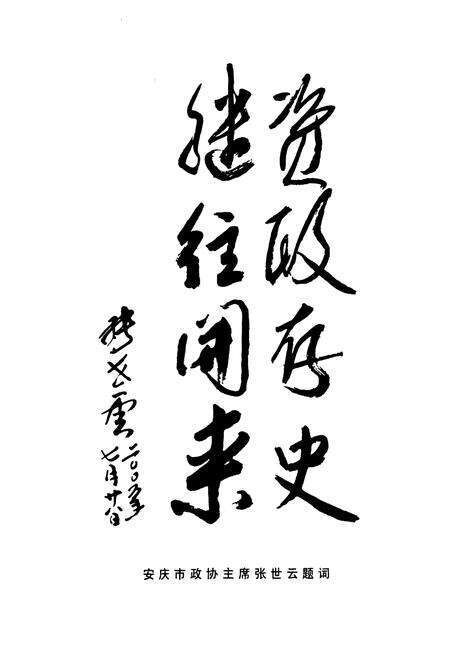 资政存史
继往开来
张世云
二〇〇五年
七月廿八日
安庆市政协主席张世云题词